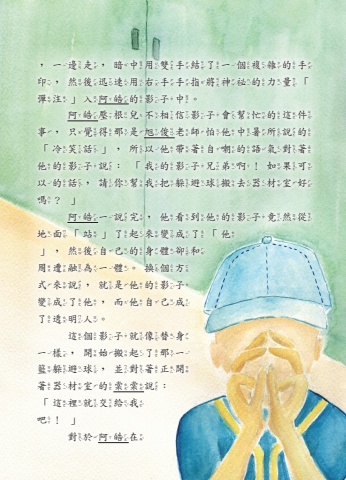 ，一邊走，暗中用雙手結了一個複雜的手
印，然後迅速用右手手指將神祕的力量「
彈注」入阿皓的影子中。
阿皓壓根兒不相信影子會幫忙的這件
事，只覺得那是旭俊老師怕他中暑所說的
「冷笑話」，所以他帶著自嘲的語氣對著
他的影子說：「我的影子兄弟啊！如果可
以的話，請你幫我把躲避球搬去器材室好
嗎？」
阿皓一說完，他看到他的影子竟然從
地面「站」了起來變成了「他
」，然後自己的身體卻和
周遭融為一體。換個方
式來說，就是他的影子
變成了他，而他自己成
了透明人。
這個影子就像替身
一樣，開始搬起了那一
籃躲避球，並對著正開
著器材室的棠棠說：
「這裡就交給我
吧！」
對於阿皓在